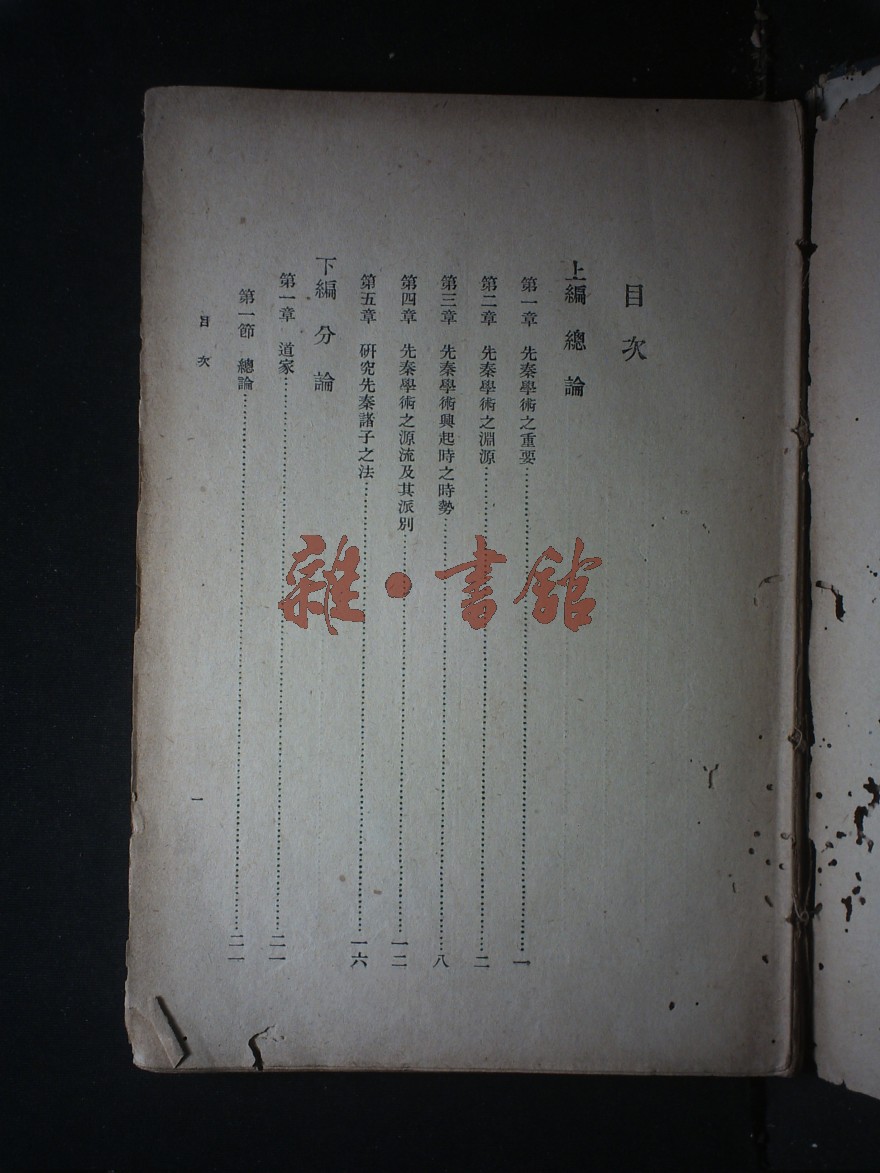 目次
上編 總論
第一章 先秦學術之重要………一
第二章 先秦學術之淵源………二
第三章 先秦學術興起時之時勢………八
第四章 先秦學術之源流及其派別………一二
第五章 研究先秦諸子之法………一六
下編 分論
第一章 道家………二一
第一節 總論………二一
目次
一
雜·書館